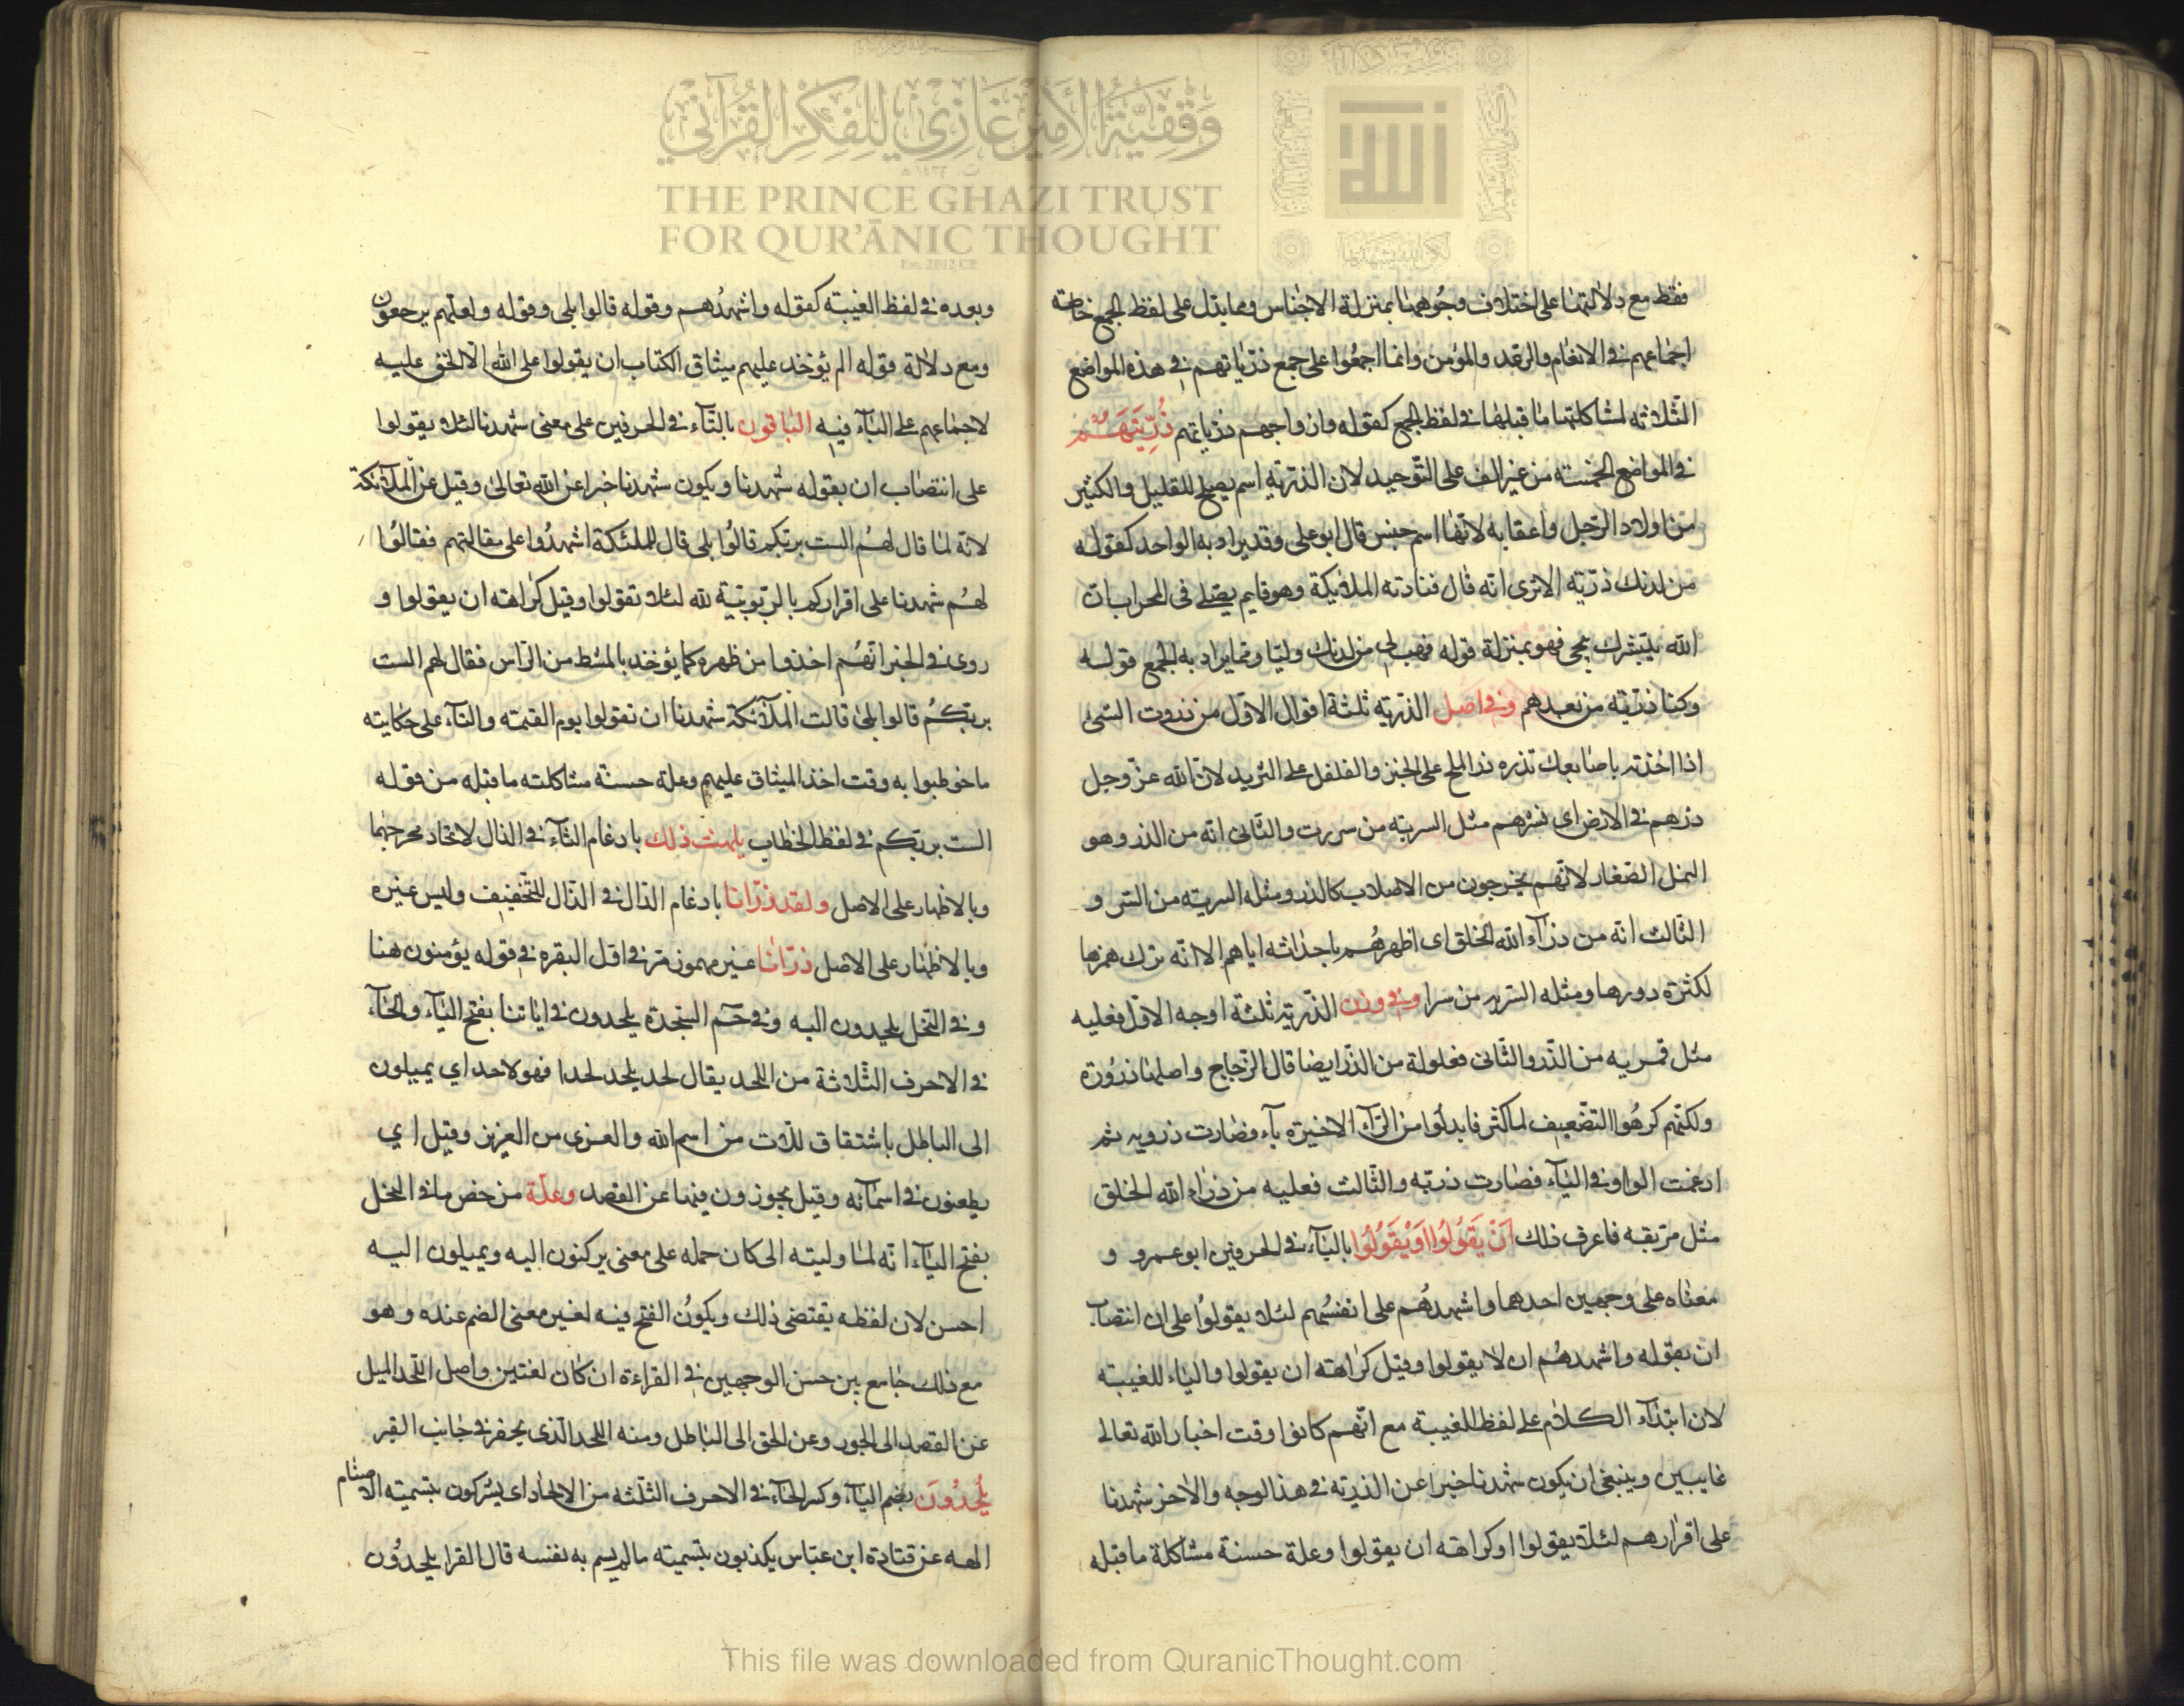 وَقْفِيَّةُ الأَمِيْرِ غَازِيْ لِلْفِكْرِ القُرْآنِيِّ
THE PRINCE GHAZI TRUST
FOR QUR'ĀNIC THOUGHT
Est. 2012 CE
فقط مع دلالتهما على اختلاف وجوههما بمنزلة الاجناس ومما يدل على لفظ الجمع خاصة
اجماعهم في الانعام والرعد والمؤمن وانما اجمعوا على جمع ذرّياتهم في هذه المواضع
الثلاثه لمشاكلتها ما قبلها في لفظ الجمع كقوله وازواجهم وذرياتهم ذُرِّيَّتَهُمْ
في المواضع الخمسه من غير الف على التوحيد لان الذريّة اسم يصلح للقليل والكثير
من اولاد الرجل واعقابه لانها اسم جنس قال ابو علي وقد يراد به الواحد كقوله
من لدنك ذريّه الا ترى انه قال فنادته الملائكة وهو قايم يصلي في المحراب ان
الله يبشرك بيحيى فهو بمنزلة قوله فهب لي من لدنك وليا ومما يراد به الجمع قوله
وكنا ذريّة من بعدهم وفي اصل الذريّه ثلثة اقوال الاول من ذروت الشئ
اذا اخذته باصابعك تذره ذر الملح على الخبز والفلفل على الثريد لان الله عز وجل
ذرهم في الارض اى نثرهم مثل السريه من سررت والثانى انه من الذر وهو
النمل الصغار لانهم يخرجون من الاصلاب كالذر ومثله السريه من السر و
الثالث انه من ذرآء الله الخلق اى اظهرهم باحداثه اياهم الا انه ترك همزها
لكثرة دورها ومثله السريه من سرا وفي وزن الذريّة ثلثة اوجه الاول فعليه
مثل قمريه من الذر والثانى فعلولة من الذر ايضا قال الزجاج واصلها ذرُورة
ولكنهم كرهُوا التضعيف لما كثر فابدلوا من الرآء الاخيرة يآء فصارت ذرويه ثم
ادغمت الواو في اليآء فصارت ذريّه والثالث فعليه من ذرآء الله الخلق
مثل مريقه فاعرف ذلك اَنْ يَقُولُوا اَوْ يَقُولُوا باليآء في الحرفين ابو عمرو و
معناه على وجهين احدهما واشهدهُم على انفسهم لئلا يقولوا على ان انتصاب
ان بقوله واشهدهُم ان لا يقولوا وقيل كراهته ان يقولوا والياء للغيبته
لان ابتدآء الكلام على لفظ الغيبة مع انهم كانوا وقت اخبار الله تعالى
غايبين وينبغي ان يكون شهدنا خبرا عن الذريّه في هذا الوجه والاخر شهدنا
على اقرارهم لئلا يقولوا او كراهته ان يقولوا وعلة حسنة مشاكلة ما قبله
وبعده في لفظ الغيبته كقوله واشهدُهم وقوله قالوا بلى وقوله ولعلهم يرجعون
ومع دلالة قوله الم يؤخذ عليهم ميثاق الكتاب ان يقولوا على الله الا الحق عليه
لاجماعهم على اليآء فيه الباقون بالتآء في الحرفين على معنى شهدنا لئلا يقولوا
على انتصاب ان بقوله شهدنا ويكون شهدنا خبرا عن الله تعالى وقيل عن الملآئكة
لانه لما قال لهُم الست بربكم قالوُا بلى قال للملئكة اشهدُوا على مقالتهم فقالوُا
لهُم شهدنا على اقراركم بالربوبيّة لله لئلا تقولوا وقيل كراهته ان يقولوا و
روى في الخبر انهُم اخذوا من ظهره كما يؤخذ بالمشط من الرّاس فقال لهم الست
بربكُم قالوا بلى قالت الملآئكة شهدنا ان تقولوا يوم القيمة والتآء على حكايته
ما خوطبوا به وقت اخذ الميثاق عليهم وعلة حسنة مشاكلته ما قبله من قوله
الست بربكم في لفظ الخطاب يلهث ذلك بادغام الثآء في الذال لاتحاد مخرجهما
وبالاظهار على الاصل ولقد ذرّانا بادغام الدّال في الذّال للتخفيف وليس غيره
وبالاظهار على الاصل ذرّانا غير مهموز مر في اول البقره في قوله يؤمنون هنا
وفي النحل يلحدون اليه وفي حم السّجدة يلحدون في اياتنا بفتح اليآء والحآء
في الاحرف الثّلاثة من اللحد يقال لحد يلحد لحدا فهو لاحد اي يميلون
الى الباطل باشتقاق للّات من اسم الله والعزى من العزيز وقيل اي
يطعنون في اسمآئه وقيل يجوزون فيها عن القصد وعلّة من خص ما في النحل
بفتح اليآء انه لما وليته الى كان حمله على معنى يركنون اليه ويميلون اليه
احسن لان لفظه يقتضى ذلك ويكونُ الفتح فيه لغير معنى الضم عنده وهو
مع ذلك جامع بين حسن الوجهين في القراءة ان كان لغتين واصل اللحد الميل
عن القصد الى الجور وعن الحق الى الباطل ومنه اللحد الّذى يحفر في جانب القبر
يُلْحِدُونَ بضم اليآء وكسر الحآء في الاحرف الثلثه من الالحاد اى يشركون بتسميته الاصنام
الهه عن قتادة ابن عباس يكذبون بتسميته ما لم يسم به نفسه قال الفرا يلحدُون
This file was downloaded from QuranicThought.com